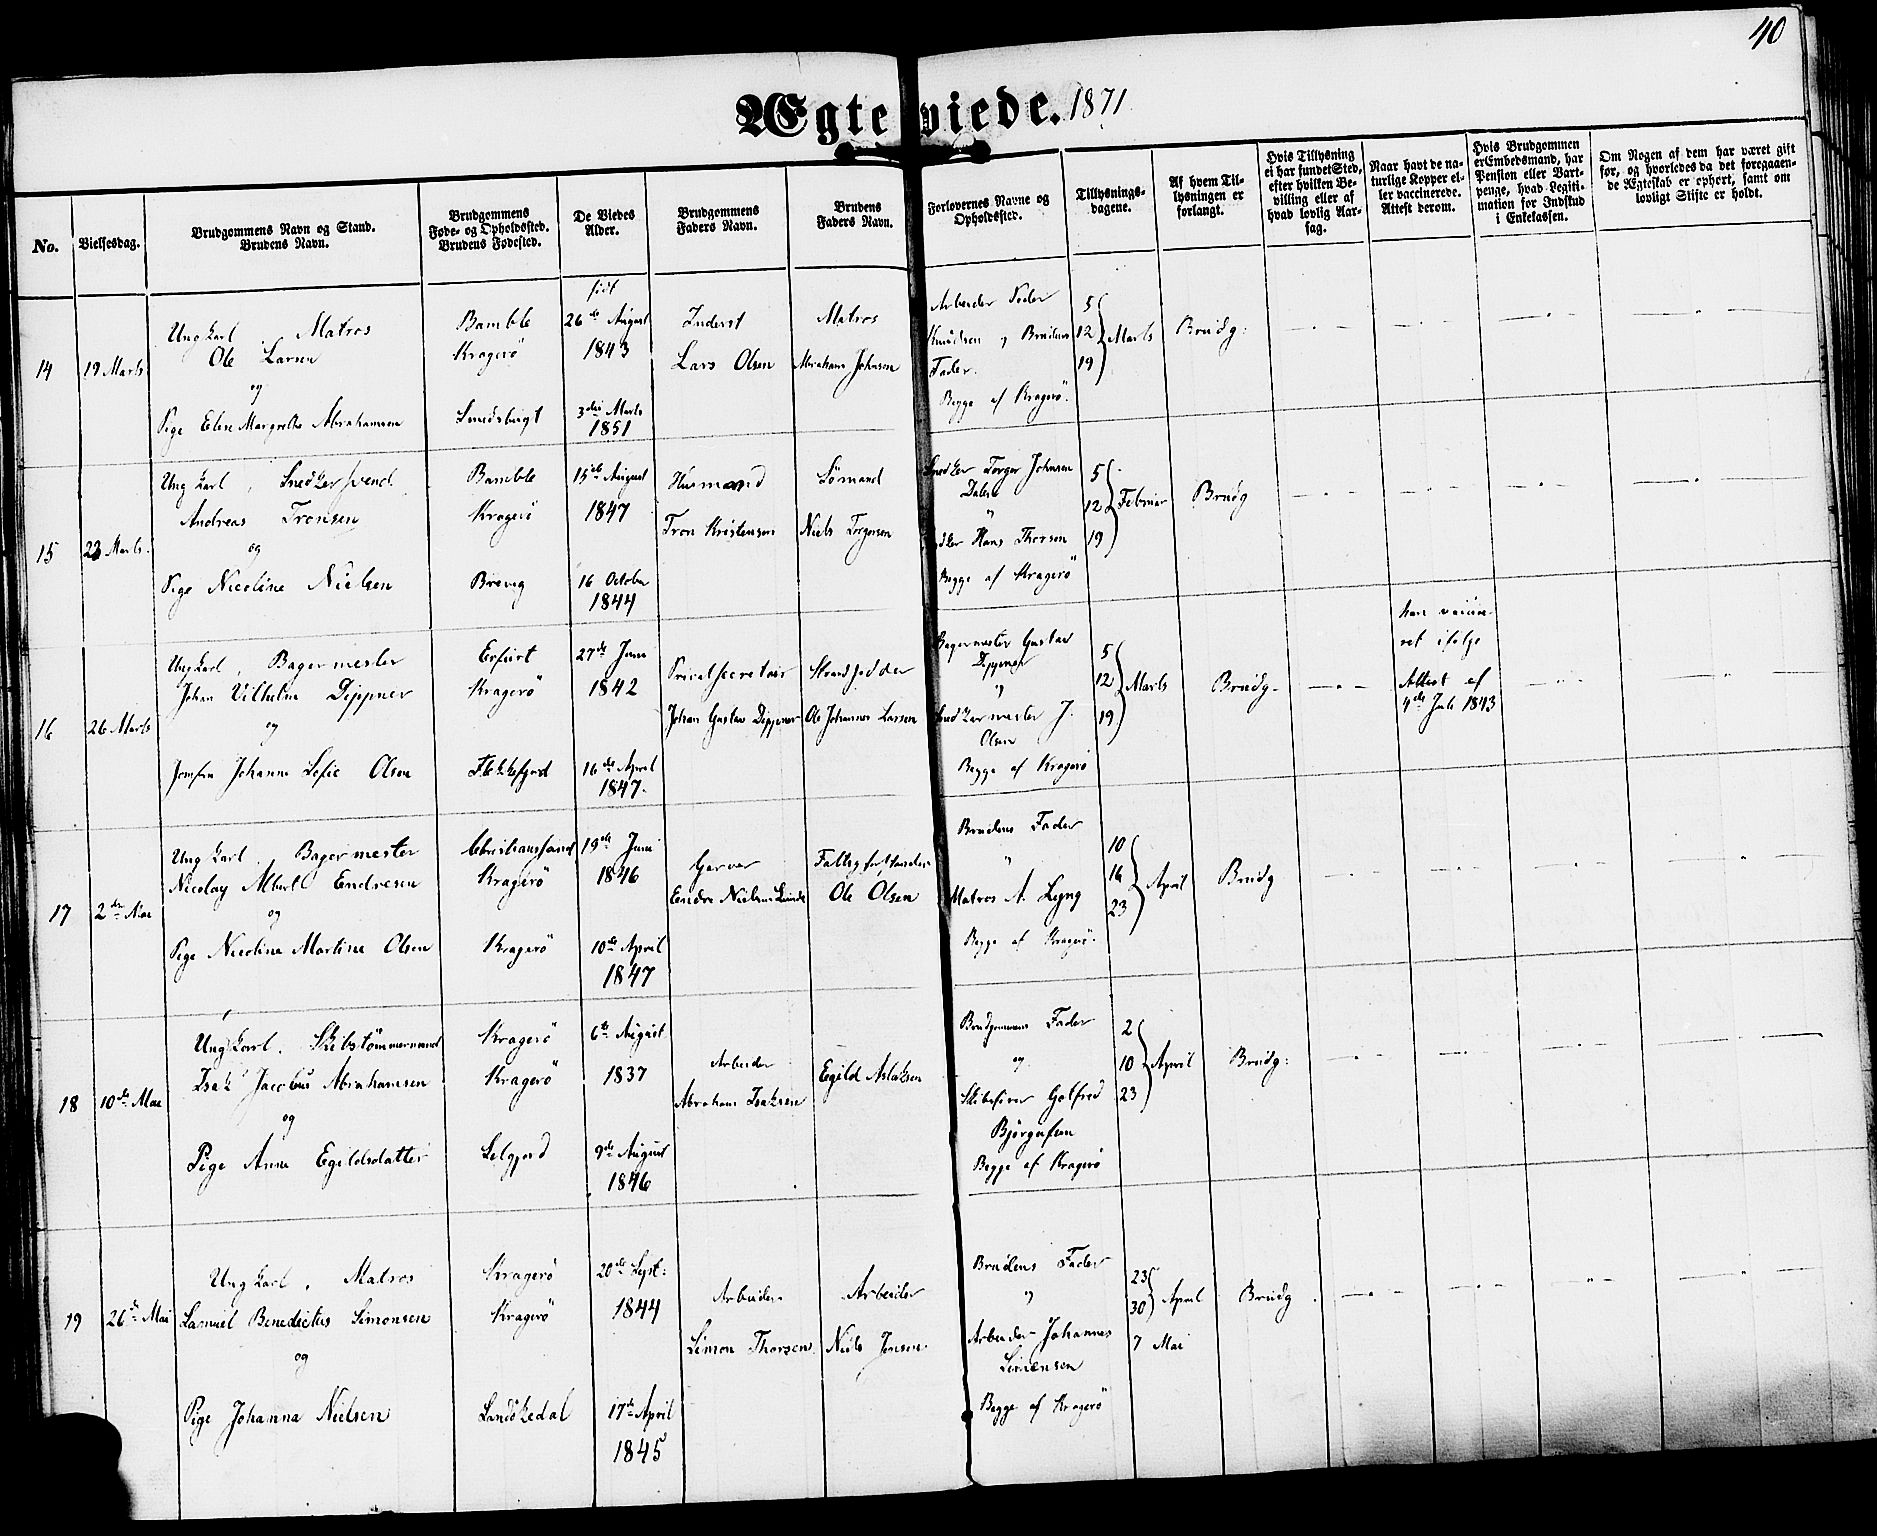 40
Ægteviede. 1871
No.
Vielsesdag.
Brudgommens Navn og Stand.
Brudens Navn.
Brudgommens
Føde- og Opholdssted.
Brudens Fødested.
De Viedes
Alder.
Brudgommens
Faders Navn.
Brudens
Faders Navn.
Forlovernes Navne og
Opholdssted.
Tillysnings-
dagene.
Af hvem Til-
lysningen er
forlangt.
Hvis Tillysning
ei har fundet Sted,
efter hvilken Be-
villing eller af
hvad lovlig Aar-
sag.
Naar havt de na-
turlige Kopper el-
ler vaccinerede.
Attest derom.
Hvis Brudgommen
er Embedsmand, har
Pension eller Vart-
penge, hvad Legiti-
mation for Indskud
i Enkekassen.
Om Nogen af dem har været gift
før, og hvorledes da det foregaaen-
de Ægteskab er ophørt, samt om
lovligt Skifte er holdt.
14
19 Marts
Ungkarl, Matros
Ole Larsen
og
Pige Elen Margrethe Abrahamsen
Bamble
Kragerö
Smedsbugt
født
26de August
1843
3die Marts
1851
Inderst
Lars Olsen
Matros
Abraham Johnsen
Arbeider Peder
Knudsen og Brudens
Fader.
Begge af Kragerö.
5
12 Marts
19
Brudg:
15
23 Marts.
Ungkarl, Snedkersvend.
Andreas Tronsen
og
Pige Nicoline Nielsen
Bamble
Kragerö
Brevig
15de August
1847
16 October
1844
Husmand
Tron Kristensen
Sömand
Niels Torgersen
Snedker Torger Johnsen
Dalen
"
Hans Thorsen
Begge af Kragerö
5
12 Februar
19
Brudg
16
26 Marts
Ungkarl, Bagermester
Johan Vilhelm Dippner
og
Jomfru Johanne Sofie Olsen
Erfurt
Kragerö
Flekkefjord
27de Juni
1842
16de April
1847.
Privatsecretair
Johan Gustav Dippner
Strandsidder
Ole Johannes Larsen
Bagermester Gustav
Dippner
"
Snedkermester J.
Olsen
Begge af Kragerö
5
12 Marts
19
Brudg.
Han vacine-
ret ifølge
Attest af
4de Juli 1843
17
2den Mai
Ungkarl. Bagermester
Nicolay Albert Endresen
og
Pige Nicoline Martine Olsen
Christianssand
Kragerö
Kragerö
19de Juni
1846
10de April
1847
Garver
Endre Nielsen Lunde
Fattigforstander
Ole Olsen
Brudens Fader
"
Matros A. Lyng
Begge af Kragerö.
10
16 April
23
Brudg
18
10de Mai
Ungkarl. Skibstömmermand
Isak Jacobus Abrahamsen
og
Pige Anne Egildsdatter
Kragerö
Kragerö
Selgjord
6te August
1837
9de August
1846
Arbeider
Abraham Isaksen
Egild Aslaksen
Brudgommens Fader
og
Skibsfører Gotfred
Björgulfsen
Begge af Kragerö
2
10 April
23
Brudg:
19
26de Mai
Ungkarl, Matros
Samuel Benedictus Simonsen
og
Pige Johanna Nielsen
Kragerö
Kragerö
Sandökedal
20de Sept:
1844
17de April
1845
Arbeider
Simon Thorsen.
Arbeider
Niels Jensen
Brudens Fader
"
Arbeider Johannes
Simensen
Begge af Kragerö
23
30 April
7 Mai
Brudg.